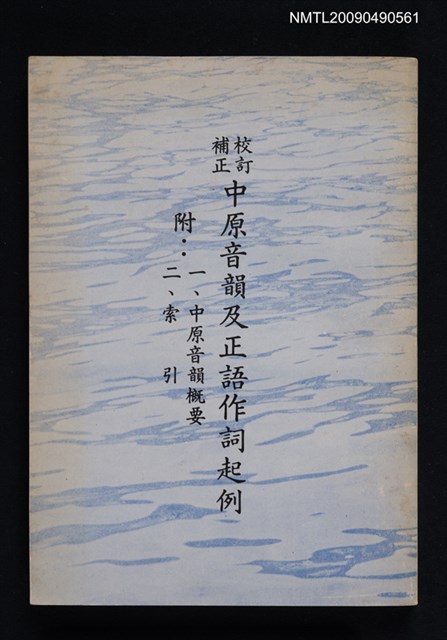 NMTL20090490561
校訂
補正
中原音韻及正語作詞起例
附：
一、中原音韻概要
二、索引